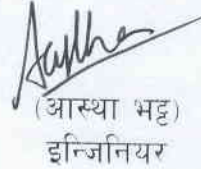 (आस्था भट्ट)
इन्जिनियर